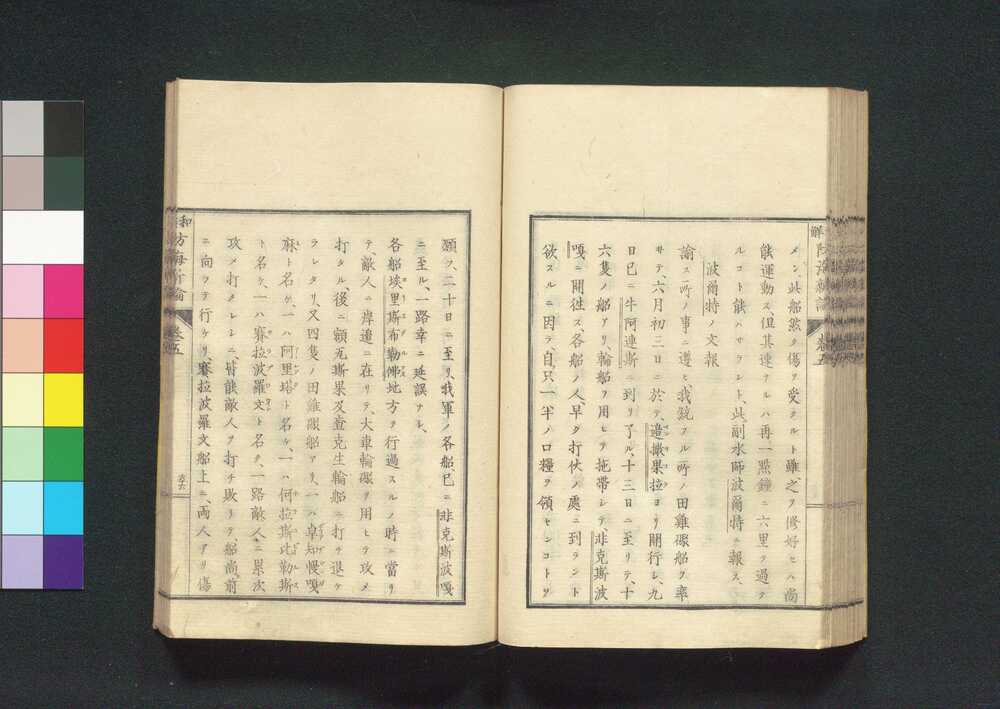 メン、此船然ク傷ヲ受クルト雖、之ヲ修好セハ尚
能運動ス、但其速ナルハ再、一點鐘ニ六里ヲ過ク
ルコト能ハサラント、此、副水師波爾特ニ報ス、
波爾特ノ文報
諭ス所ノ事ニ遵ヒ、我統フル所ノ田雞礮船ヲ率
サテ、六月初三日ニ於テ、造撤果拉ヨリ開行シ、九
日已ニ牛阿連斯ニ到リ了ル、十三日ニ至リテ、十
六隻ノ船アリ、輪船ヲ用ヒテ拖帶シテ、非克斯波
嘎ニ開徃ス、各船ノ人、早ク打伏ノ處ニ到ラント
欲スルニ因テ、自、只一半ノ口糧ヲ領センコトヲ
解防海新論
卷五
願フ、二十日ニ至リ、我軍ノ各船已ニ非克斯波嘎
ニ至ル、一路幸ニ延誤ナシ、
各船埃里斯布勒佛地方ヲ行過スルノ時ニ當リ
テ、敵人ニ岸邉ニ在リテ、大車輪礮ヲ用ヒテ攻メ
打タル、後ニ額尤斯果及査克生輪船ニ打チ退ケ
ラレタリ、又四隻ノ田雞礮船アリ、一ハ卓知幔嘎
麻ト名ケ、一ハ阿里塔ト名ケ、一ハ何拉斯比勒斯
ト名ケ、一ハ賽拉波羅文ト名ケ、一路敵人ニ累次
攻メ打タレシニ、皆能敵人ヲ打チ敗リテ、船尚、前
ニ向フテ行ケリ、賽拉波羅文船上ニ、兩人アリ傷
和
防海新論
卷五